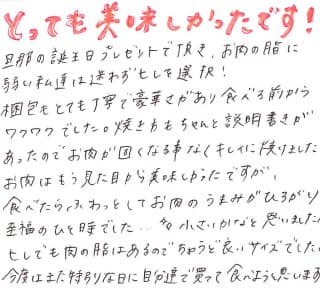 とっても美味しかったです!
旦那の誕生日プレゼントで頂き、お肉の脂に
弱い私達は迷わずヒレを選択!
梱包もとても丁寧で豪華さがあり食べる前から
ワクワクでした。焼き方もちゃんと説明書きが
あったのでお肉が固くなる事なくキレイに焼けました
お肉はもう見た目から美味しかったですが、
食べたらふわっとしてお肉のうまみがひろがり
至福のひと時でした…小さいかなと思いました
ヒレでも肉の脂はあるのでちょうど良いサイズでした
今度はまた特別な日に自分達で買って食べようと思います